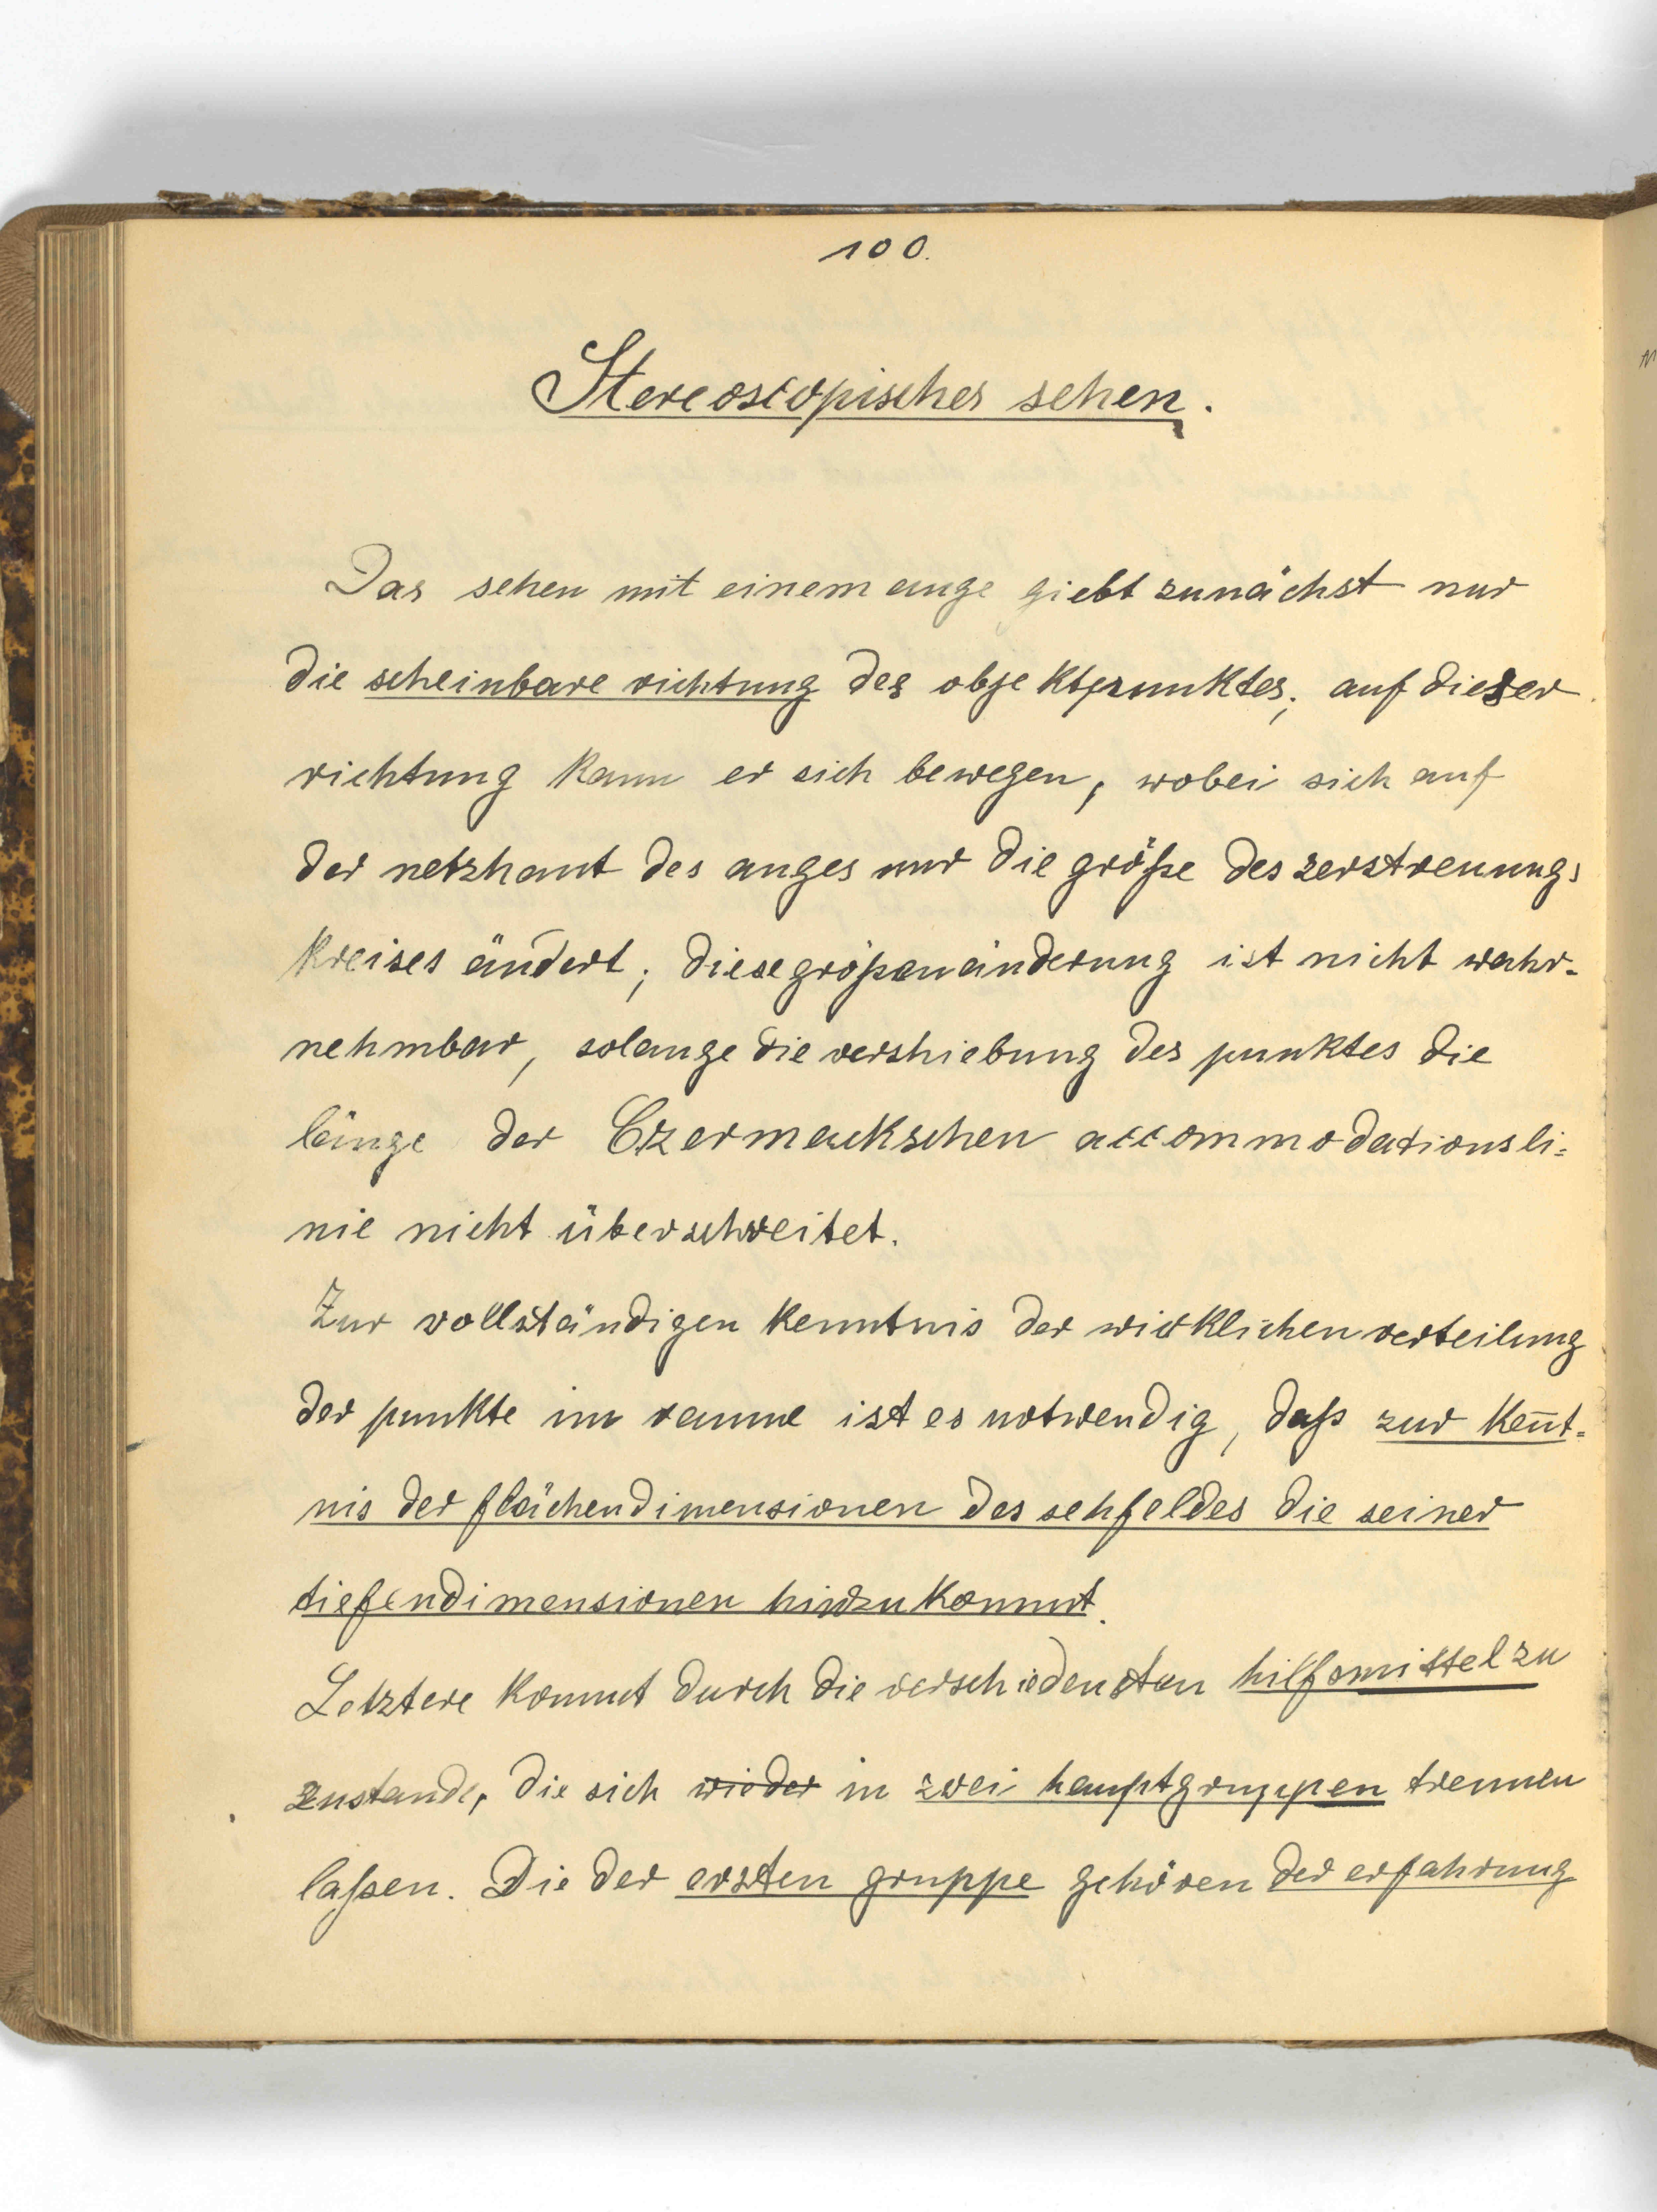 100.
Stereoscopisches sehen.
Das sehen mit einem auge giebt zunächst nur
die scheinbare richtung des objektpunktes; auf dieser
richtung kann er sich bewegen, wobei sich auf
der netzhaut des auges nur die größe des zerstreuungs
kreises ändert; diese größenänderung ist nicht wahr-
nehmbar, solange die vershiebung des punktes die
länge der Czermackschen accommodationsli=
nie nicht überschreitet.
Zur vollständigen kenntnis der wirklichen verteilung
der punkte im raume ist es notwendig, daß zur ken̄t=
nis der flächendimensionen des sehfeldes die seiner
tiefendimensionen hinzukommt.
Letztere kommt durch die verschiedensten hilfsmittel zu
zustande, die sich wieder in zwei hauptgruppen trennen
laßen. Die der ersten gruppe gehören der erfahrung